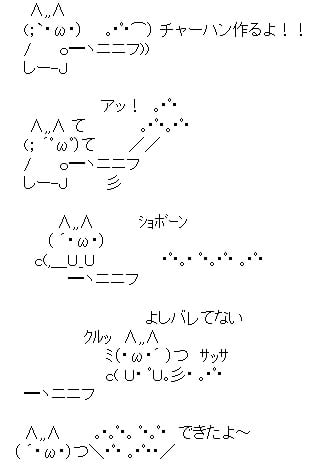 ∧,,∧
(;`・ω・)　　｡･ﾟ･⌒) チャーハン作るよ！！
/　　 o━ヽニニフ))
しー-Ｊ
アッ！　｡･ﾟ･
∧,,∧ て　　　　｡･ﾟ･｡･ﾟ･
(；´ﾟωﾟ)て　　//
/　　 o━ヽニニフ
しー-Ｊ　　　彡
∧,,∧　　　　ｼｮﾎﾞｰﾝ
( ´・ω・)
c(,__U_U　　　　･ﾟ･｡･ ﾟ･｡･ﾟ･ ｡･ﾟ･
━ヽニニフ
よしバレてない
ｸﾙｯ　∧,,∧
ﾐ(・ω・´ )つ　ｻｯｻ
c( U･ ﾟU｡彡･ ｡･ﾟ･
━ヽニニフ
∧,,∧　　｡･ﾟ･｡ ﾟ･｡ﾟ･ できたよ～
( ´・ω・)つ＼･ﾟ･ ｡･ﾟ･･／